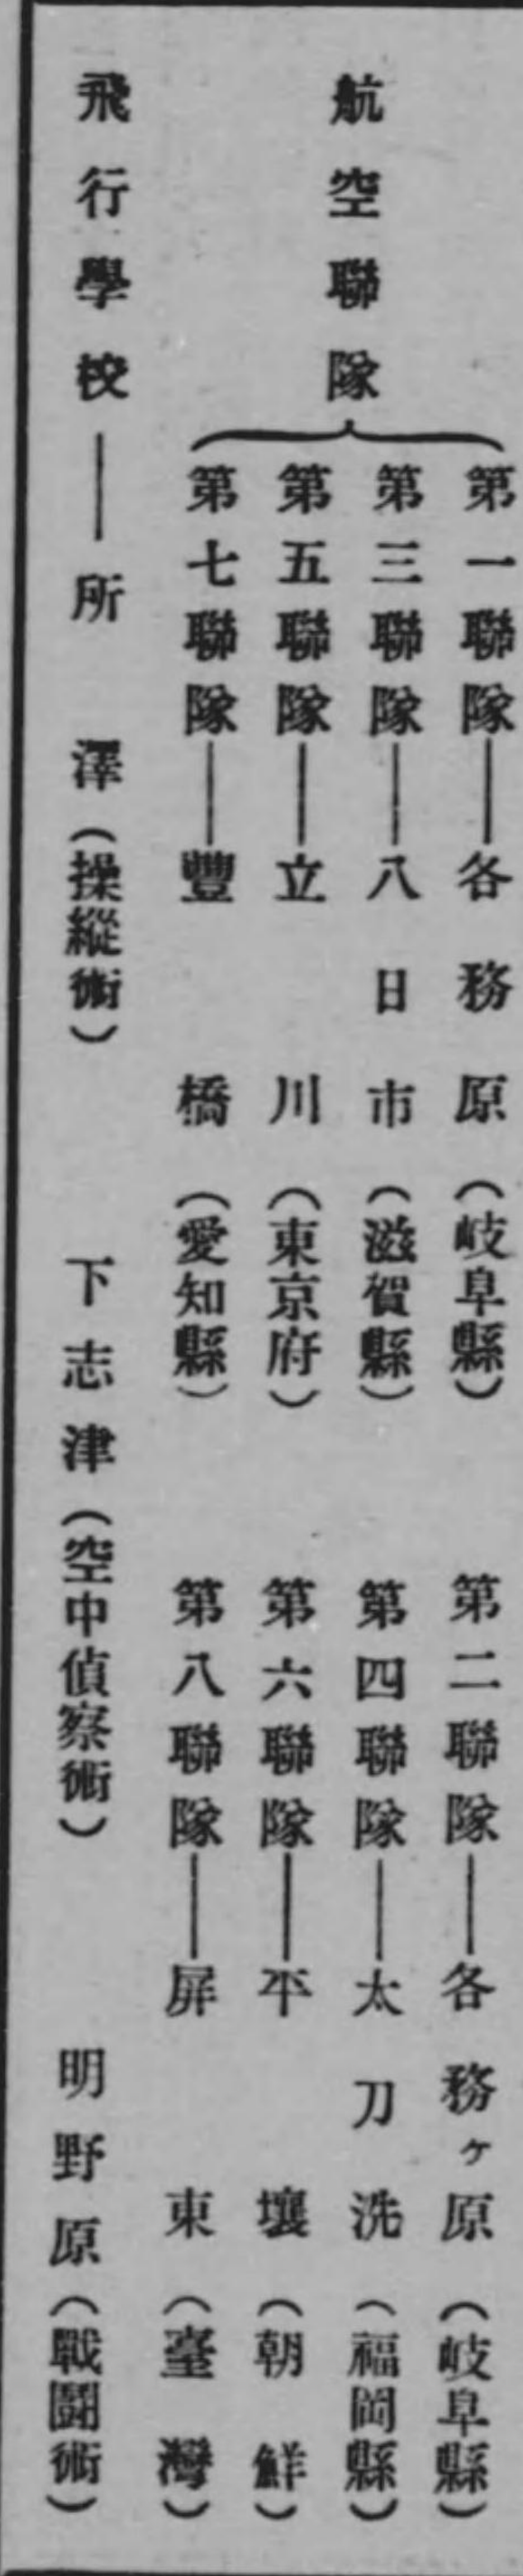 航空聯隊
第一聯隊——各務原（岐阜縣）　第二聯隊——各務ヶ原（岐阜縣）
第三聯隊——八日市（滋賀縣）　第四聯隊——太刀洗（福岡縣）
第五聯隊——立川（東京府）　第六聯隊——平壤（朝鮮）
第七聯隊——豐橋（愛知縣）　第八聯隊——屏東（臺灣）
飛行學校——所澤（操縱術）　下志津（空中偵察術）　明野原（戰鬪術）